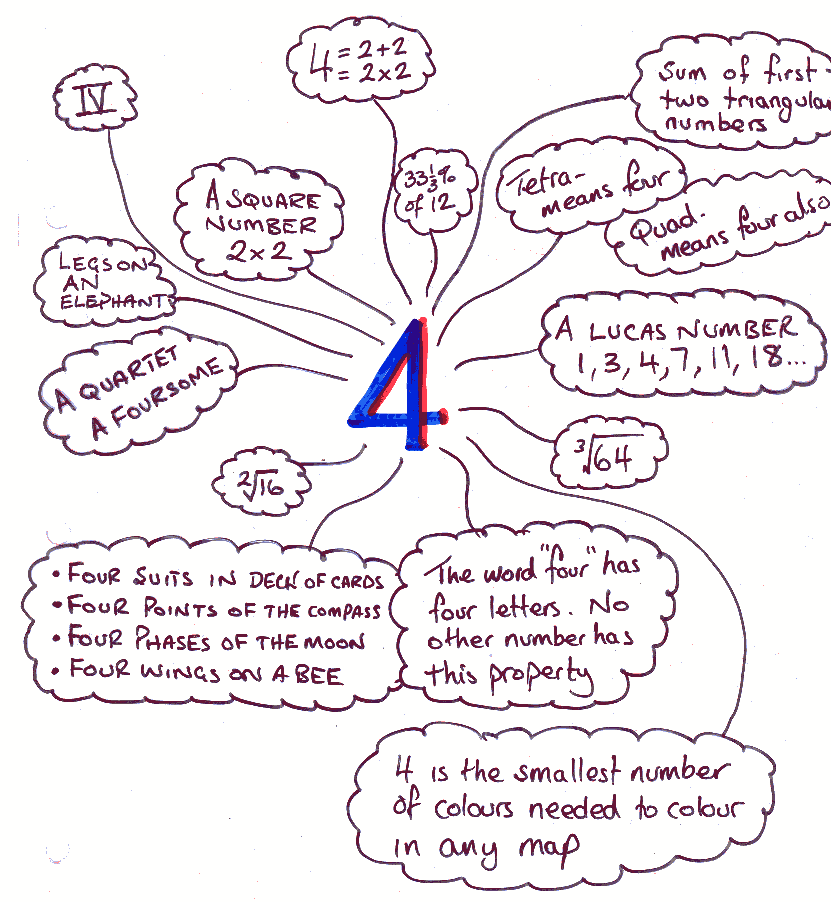 4 = 2+2
= 2×2
IV
Sum of first
two triangular
numbers
33⅓%
of 12
Tetra-
means four
A SQUARE
NUMBER
2×2
Quad-
means four also
LEGS ON
AN
ELEPHANT
A LUCAS NUMBER
1, 3, 4, 7, 11, 18...
A QUARTET
A FOURSOME
4
³√64
²√16
• FOUR SUITS IN DECK OF CARDS
• FOUR POINTS OF THE COMPASS
• FOUR PHASES OF THE MOON
• FOUR WINGS ON A BEE
The word "four" has
four letters. No
other number has
this property
4 is the smallest number
of colours needed to colour
in any map